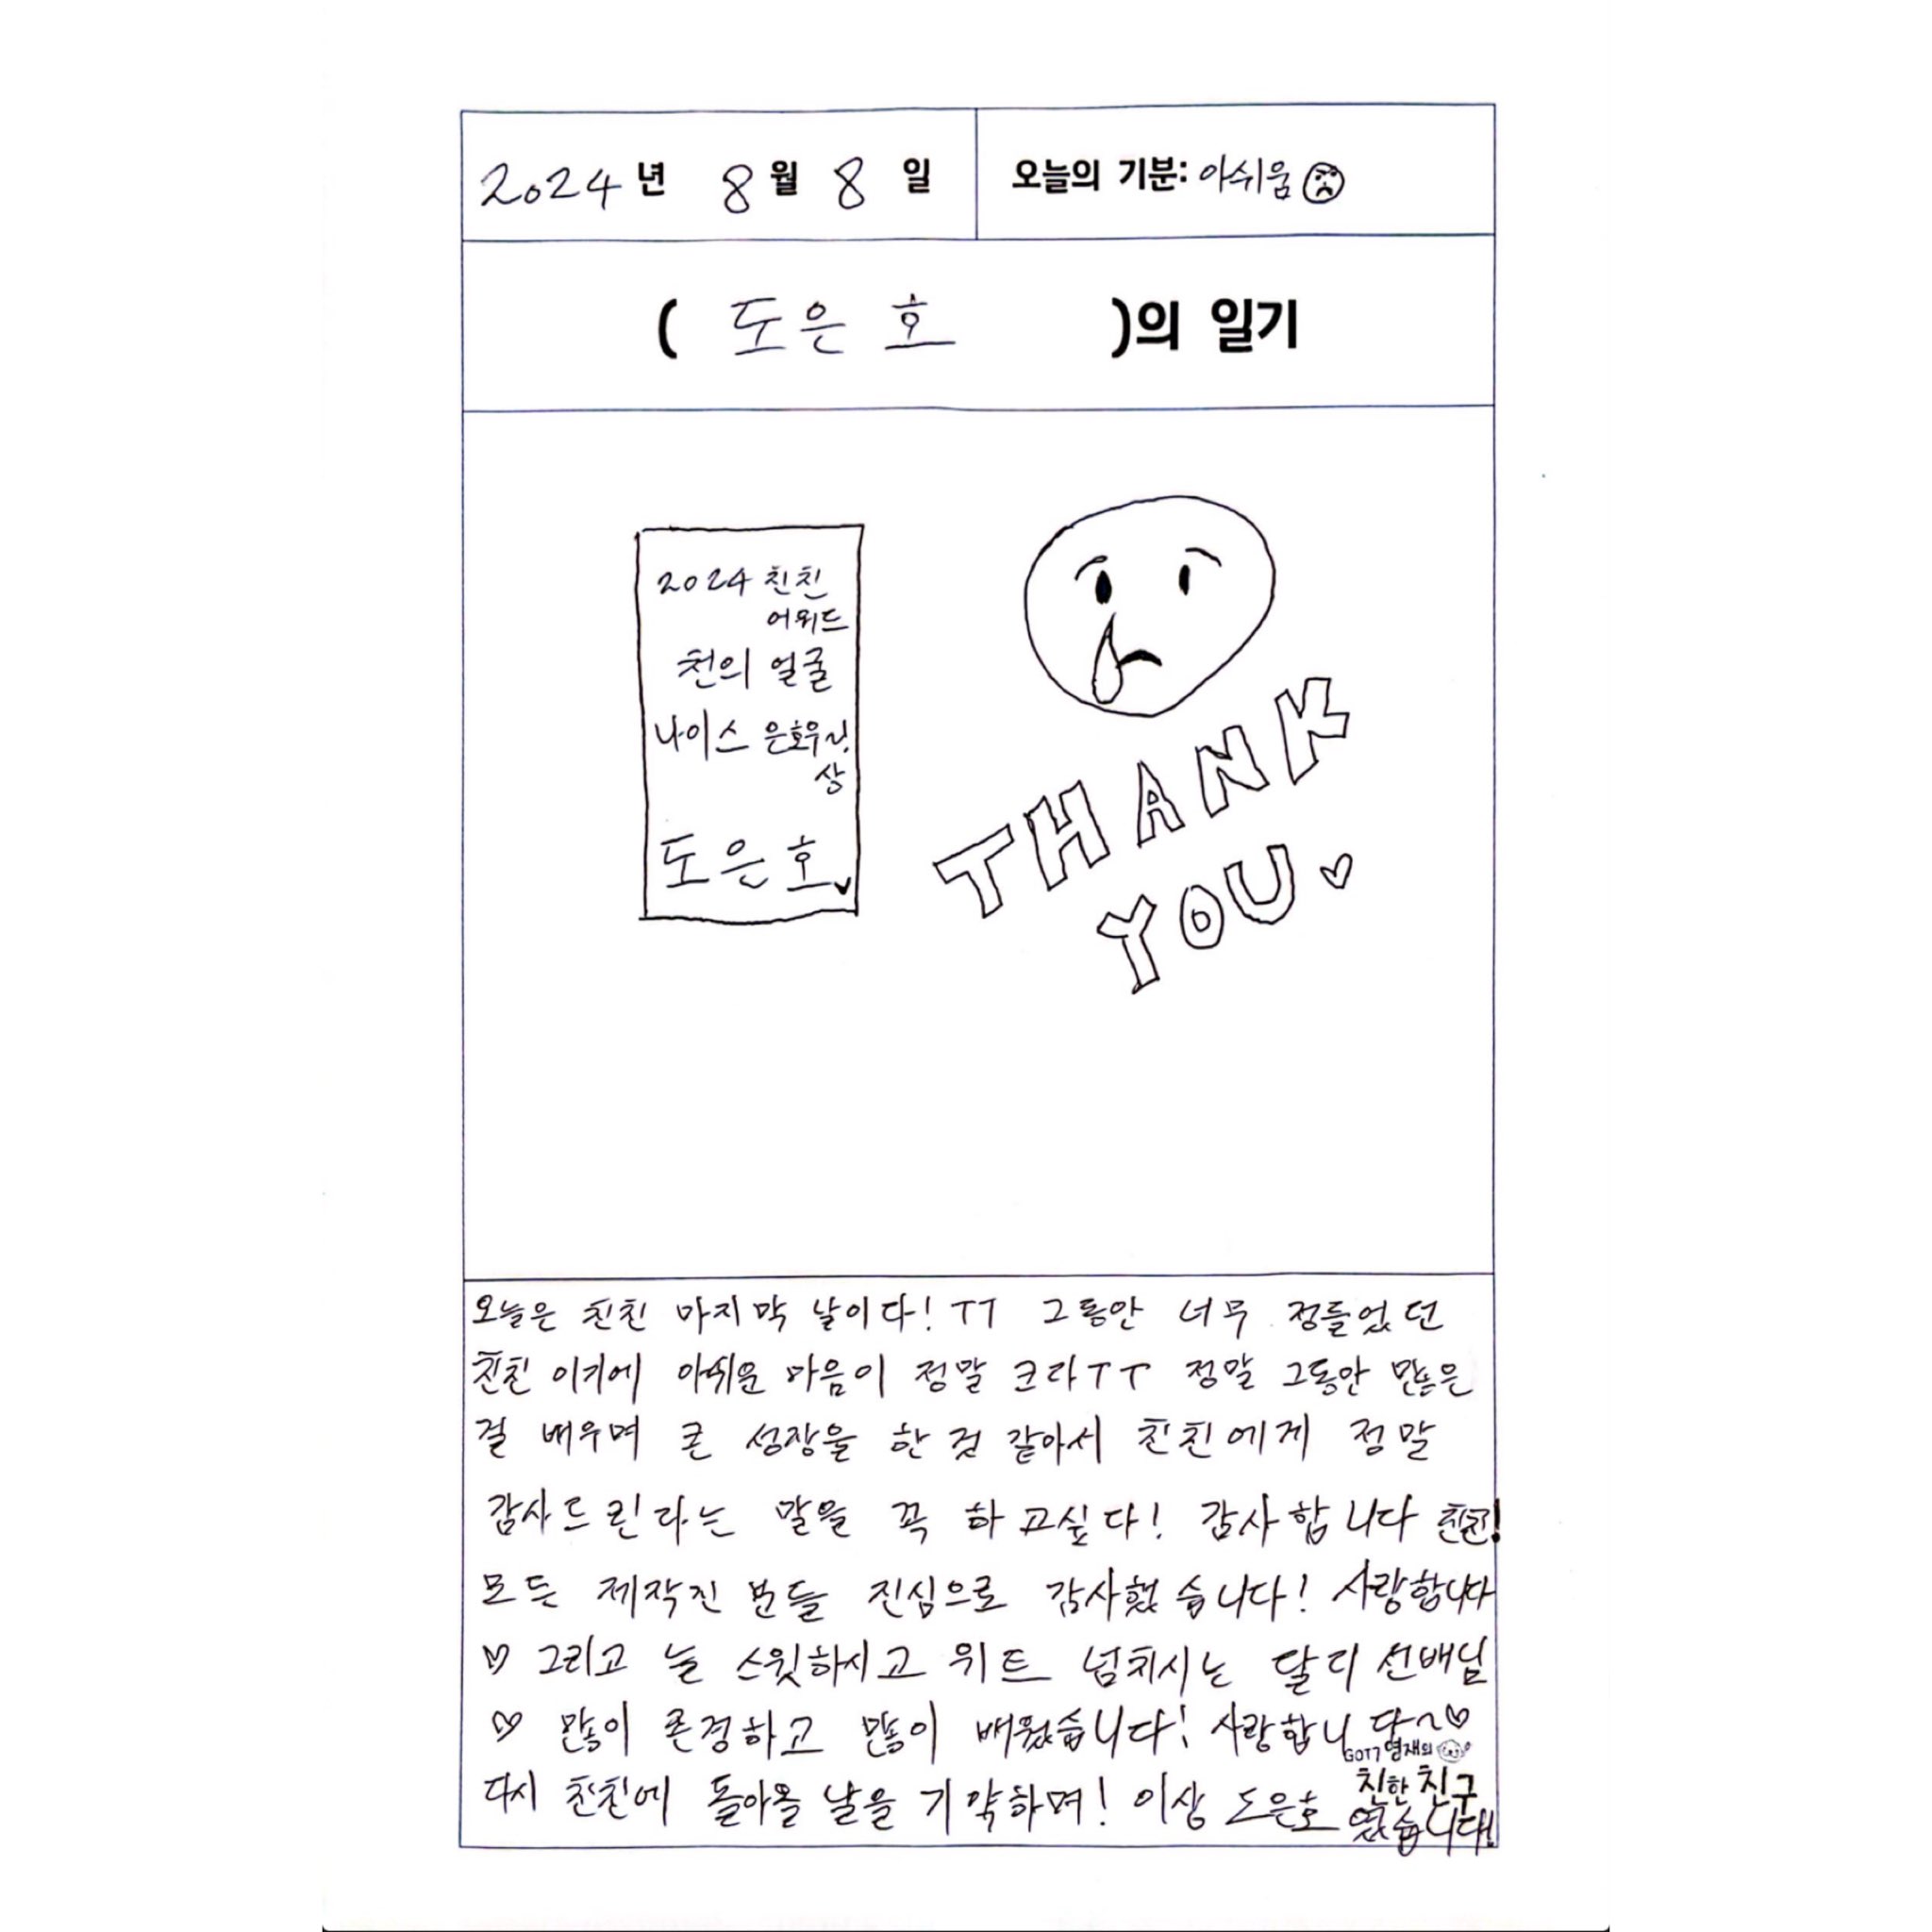 2024년 8월 8일
오늘의 기분: 아쉬움
( 도은호 )의 일기
2024 친친
어워드
천의 얼굴
나이스 은호우징
상
도은호
THANK
YOU
오늘은 친친 마지막 날이다! TT 그동안 너무 정들었던
친친 이기에 아쉬운 마음이 정말 크다TT 정말 그동안 많은
걸 배우며 큰 성장을 한 것 같아서 친친에게 정말
감사드린다는 말을 꼭 하고싶다! 감사합니다 친친!
모든 제작진 분들 진심으로 감사했습니다! 사랑합니다
♡ 그리고 늘 스윗하시고 위트 넘치시는 달디 선배님
♡ 많이 존경하고 많이 배웠습니다! 사랑합니다~♡
다시 친친에 돌아올 날을 기약하며! 이상 도은호
GOT7 영재의
친한친구
였습니다!